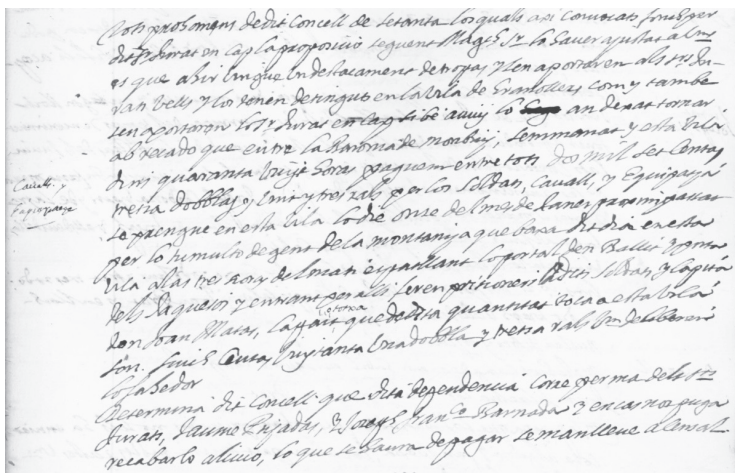 tots prohomens de dit Concell de setanta los quals axi convocats fonch per
dit Sr. Jurat en cap la proposicio seguent Magchs Srs lo haver ajustat a Vms
es que ahir vingue un destacament de tropas y sen aportaren als Srs Ju-
rats vells y los tenen detinguts en la Vila de Granollers com y tambe
sen aportaren lo Sr Jurat en cap si be avuy lo an dexat tornar
ab recado que entre la Baronia de Monbuy, Semmanat y esta Vila
dins quaranta vuyt horas paguem entre tots dos mil set Centas
trenta dobblas y vint y tres rals per los Soldats, Cavalls, y Equipatja
se prengue en esta Vila lo die onse del mes de Janer proximpassat
per lo tumulto de gent de la montanya que baxa dit dia en esta
Vila a las tres horas del mati espatllant lo portal den Ballit y porta
dels Saguesos y entrant per alli feren prisoners a dits Soldats, y Capita
don Joan Matas, la qual cosa que de dita quantitat toca a esta Vila
son. Sinch Centas vuytanta una dobbla y trenta rals Vms deliberen
lo fahedor
Determina dit Concell que dita dependencia corre per ma dels Srs
Jurats, Jaume Pujadas, y Joseph Franco Barnada y en cas nos puga
recabar lo alivio, lo que se haura de pagar se manlleve a Censal.
Cavalls y